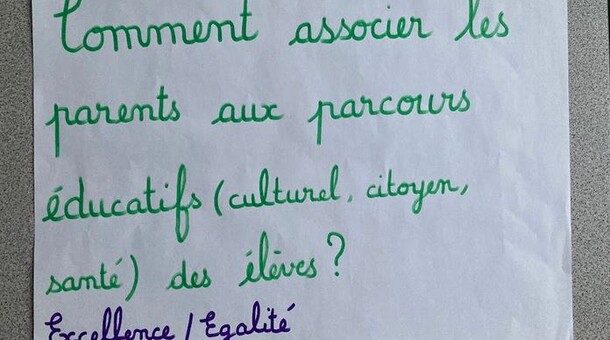 Comment associer les
parents aux parcours
éducatifs (culturel, citoyen,
santé) des élèves ?
Excellence / Egalité